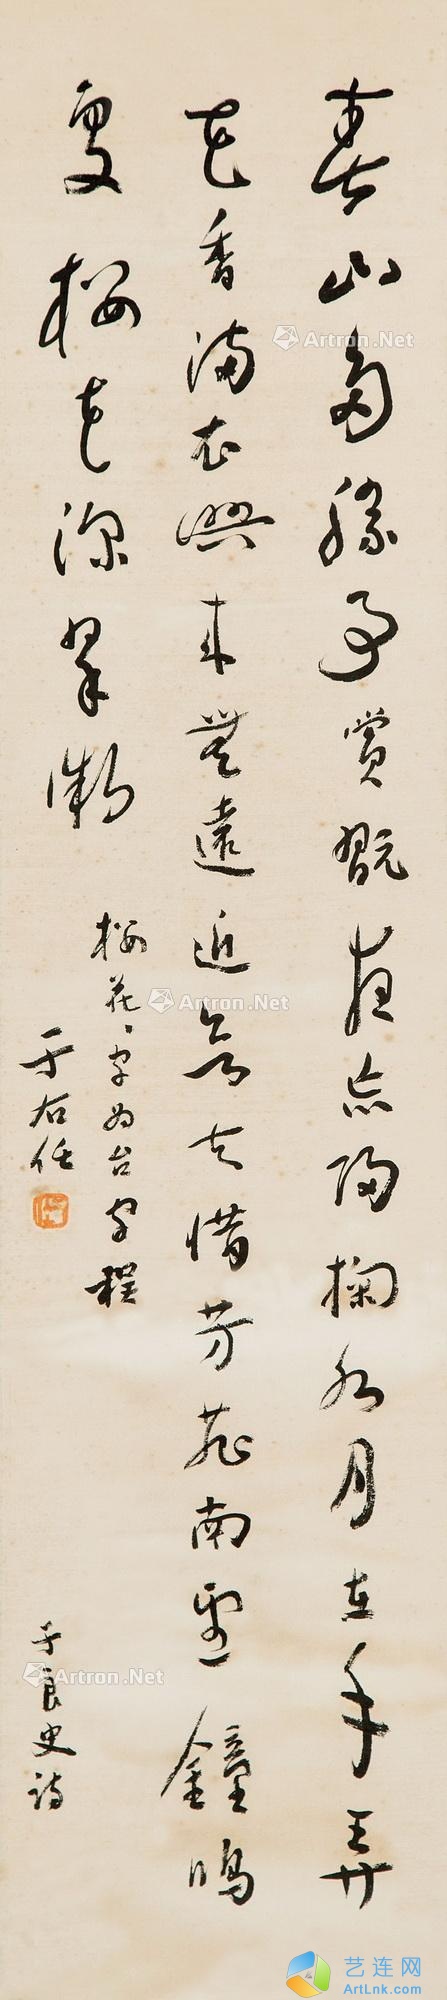 春山多勝事賞翫夜忘歸掬水月在手弄
花香滿衣興來無遠近欲去惜芳菲南望鐘鳴
處樓花深翠微
樓花、字為台字誤
于右任
于良史詩
Artron.Net
Artron.Net
Artron.Net
艺连网
ArtLnk.com